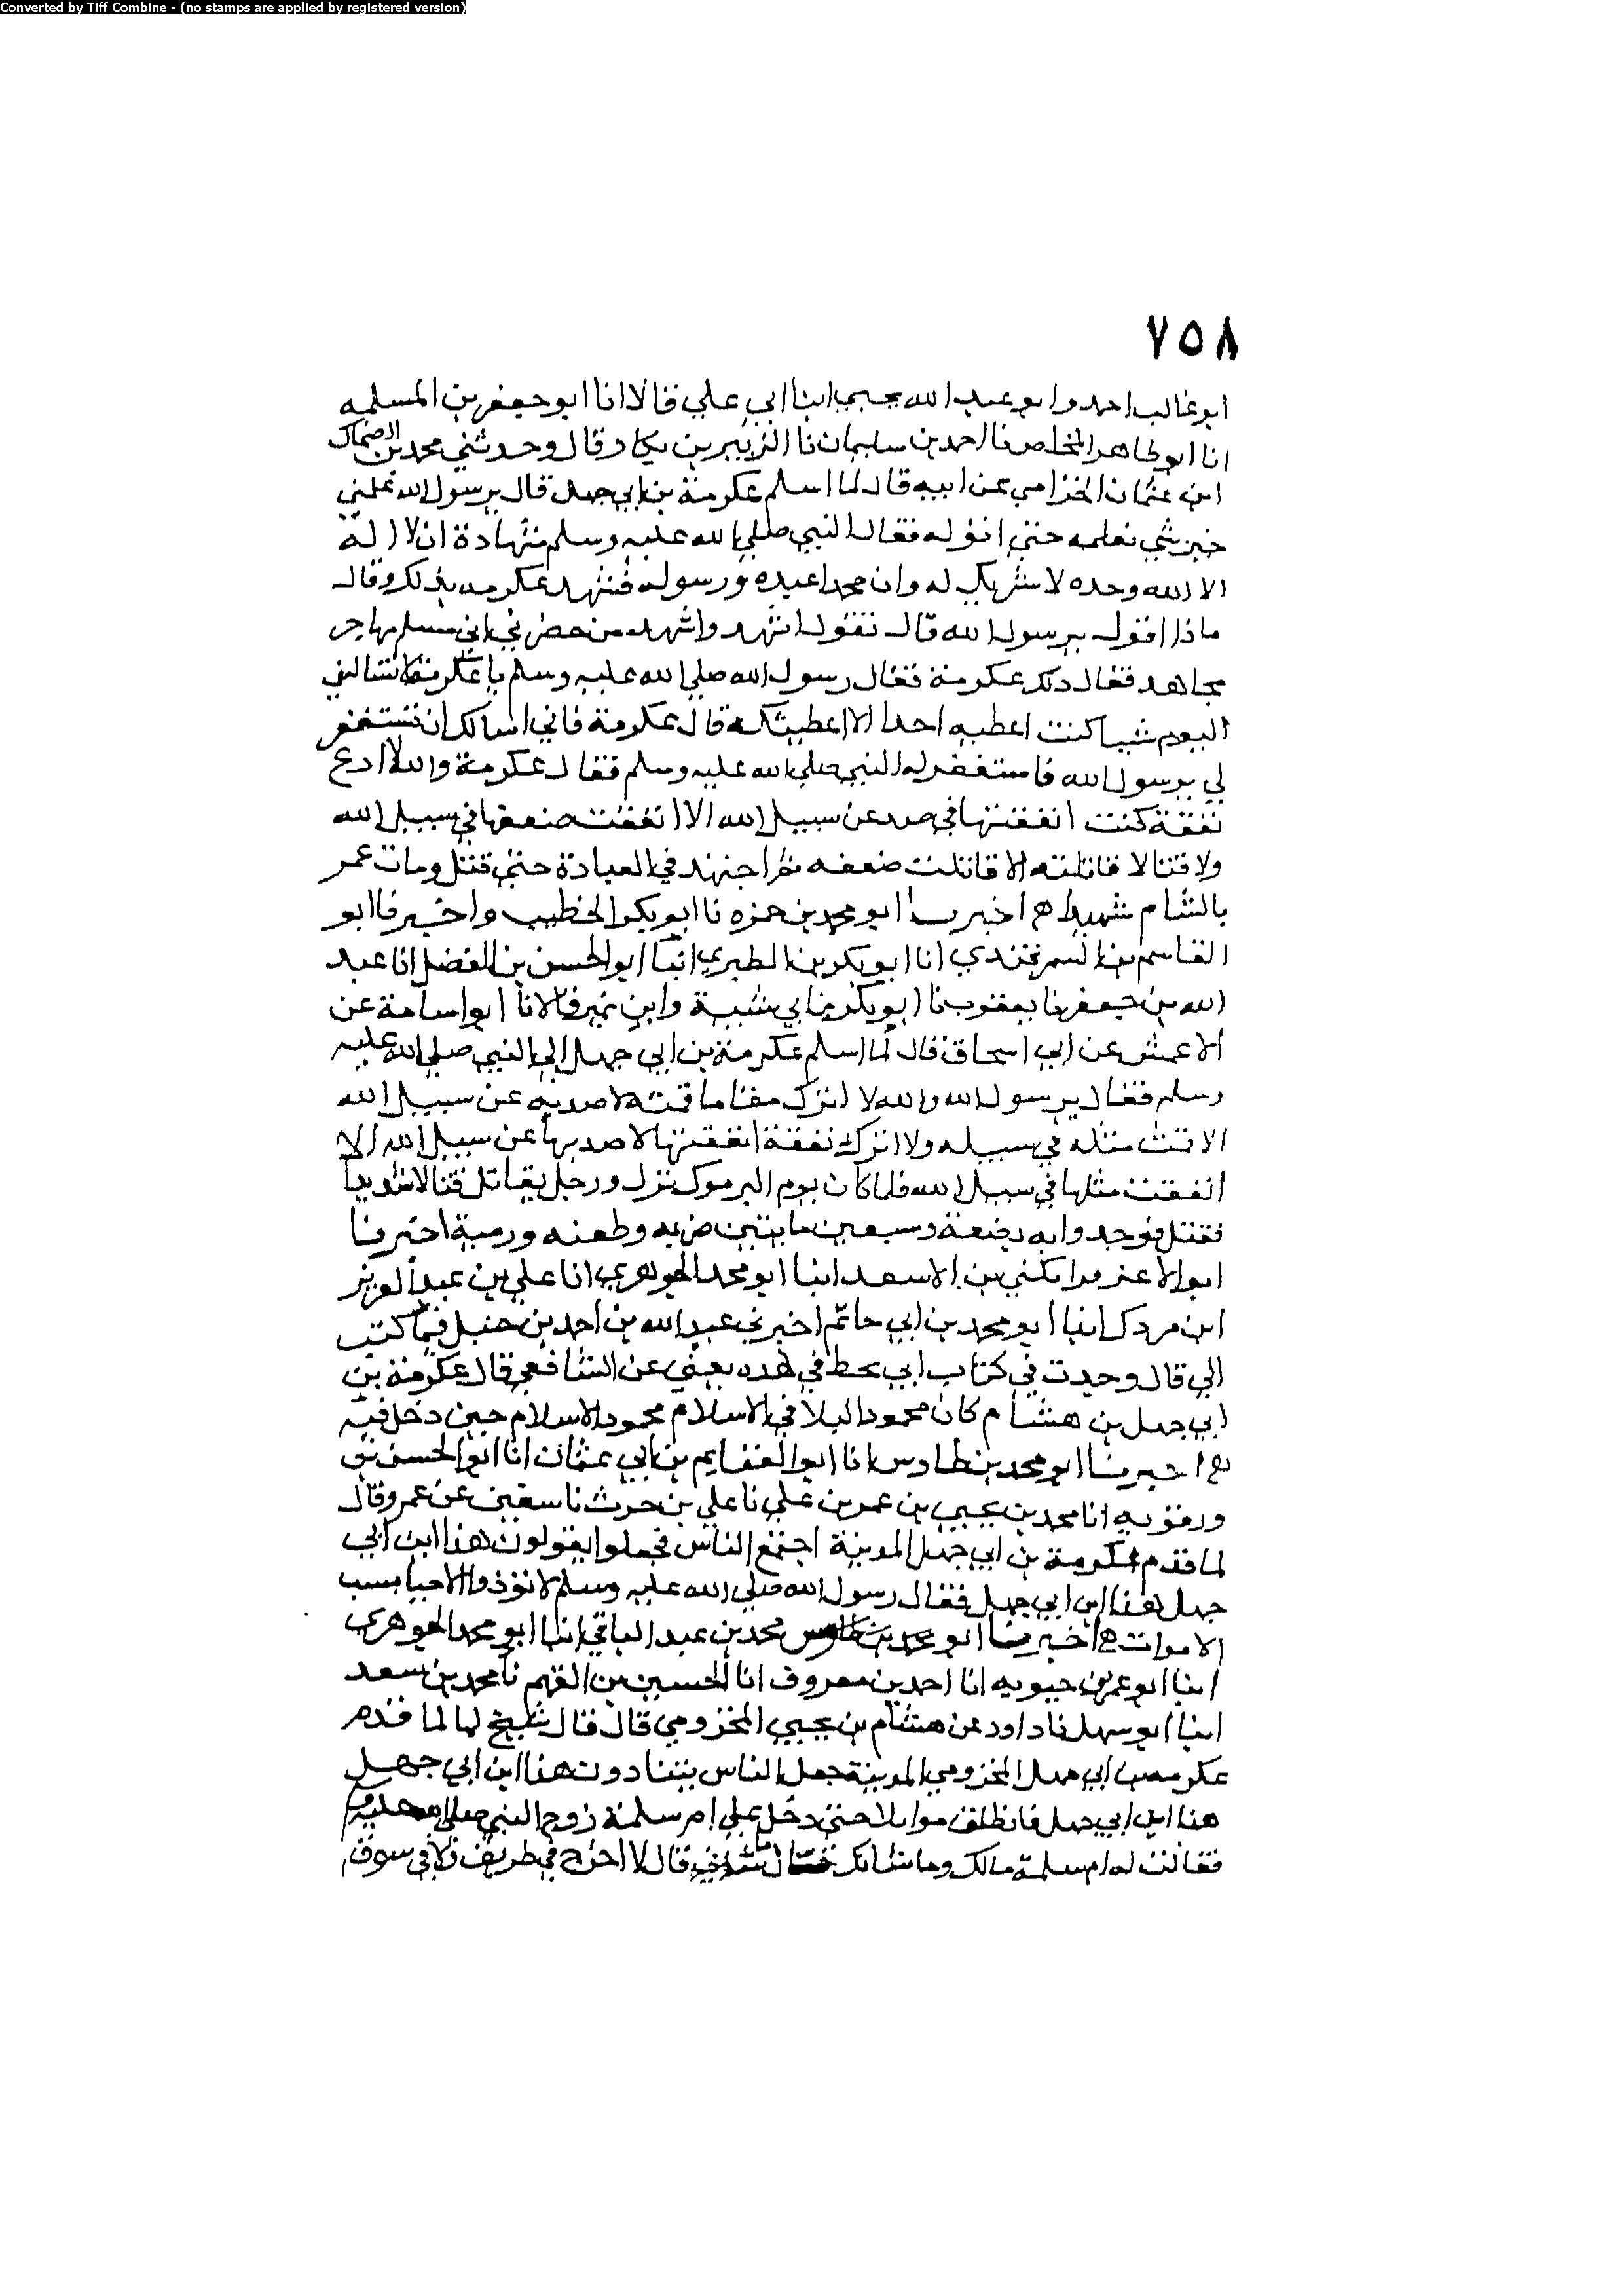 Converted by Tiff Combine - (no stamps are applied by registered version)
٧٥٨
ابو غالب احمد وابو عبد الله يحيى ابنا ابي علي قالا انا ابو جعفر بن المسلمه
انا ابو طاهر المخلص نا احمد بن سليمان نا الزبير بن بكار قال وحدثني محمد بن الضحاك
ابن عثمان الخزامي عن ابيه قال لما اسلم عكرمة بن ابي جهل قال يرسول الله علمني
خير شي تعلمه حتى اقوله فقال النبي صلى الله عليه وسلم شهادة ان لا اله
الا الله وحده لا شريك له وان محمدا عبده ورسوله فشهد عكرمه بذلك وقال
ماذا اقول يرسول الله قال تقول اشهد واشهد من حضرني اني مسلم مهاجر
مجاهد فقال ذلك عكرمة فقال رسول الله صلى الله عليه وسلم يا عكرمة لا تسالني
اليوم شيا كنت اعطيه احدا الا اعطيتكه قال عكرمة فاني اسالك ان تستغفر
لي يرسول الله فاستغفر له النبي صلى الله عليه وسلم فقال عكرمة والله لا ادع
نفقة كنت انفقتها في صد عن سبيل الله الا انفقت ضعفها في سبيل الله
ولا قتالا قاتلته الا قاتلت ضعفه ثم اجتهد في العبادة حتى قتل ومات عمر
بالشام شهيدا اخبرنا ابو محمد بن حمزه نا ابو بكر الخطيب واخبرنا ابو
القاسم بن السمرقندي انا ابو بكر بن الطبري انبا ابو الحسن بن الفضل انا عبد
الله بن جعفر نا يعقوب نا ابو بكر بن ابي شيبة وابن نمير قالا نا ابو اسامة عن
الاعمش عن ابي اسحاق قال لما اسلم عكرمة بن ابي جهل الى النبي صلى الله عليه
وسلم فقال يرسول الله والله لا اترك مقاما قمته لاصد به عن سبيل الله
الا قمت مثله في سبيله ولا اترك نفقة انفقتها لاصد بها عن سبيل الله الا
انفقت مثلها في سبيل الله فلما كان يوم اليرموك نزل ورجل يقاتل قتالا شديدا
فقتل فوجدوا به بضعة وسبعين ما بين ضربه وطعنه ورمية اخبرنا
ابو الاعز قراتكين بن الاسعد انبا ابو محمد الجوهري انا علي بن عبد العزيز
ابن مردك انبا ابو محمد بن ابي حاتم اخبرني عبد الله بن احمد بن حنبل فيما كتب
الي قال وجدت في كتاب ابي بخط في هده يعني عن الشافعي قال عكرمة بن
ابي جهل بن هشام كان محمود البلا في الاسلام محمود الاسلام حين دخل فيه
اخبرنا ابو محمد بن طاوس انا ابو الغنايم بن ابي عثمان انا ابو الحسن بن
ورقويه انا محمد بن يحيى بن عمر بن علي نا علي بن حرث نا سفين عن عمرو قال
لما قدم عكرمة بن ابي جهل المدينة اجتمع الناس فجعلوا يقولون هذا ابن ابي
جهل هذا ابن ابي جهل فقال رسول الله صلى الله عليه وسلم لا توذوا الاحيا بسب
الاموات اخبرنا ابو محمد بن عبد الباقي انبا ابو محمد الجوهري
انبا ابو عمر بن حيويه انا احمد بن معروف انا الحسين بن الفهم نا محمد بن سعد
انبا ابو سهل نا داود عن هشام بن يحيى المخزومي قال قال شيخ لنا لما قدم
عكرمه بن ابي جهل المخزومي المدينة جعل الناس يتنادون هذا ابن ابي جهل
هذا ابن ابي جهل فانطلق موايلا حتى دخل على ام سلمة زوج النبي صلى الله عليه
فقالت له ام سلمة مالك وما شانك قال لا اخرج في طريق ولا في سوق